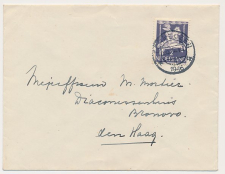 Mejuffrouw M. Mosters
Diaconessenhuis
Bronovo
den Haag.